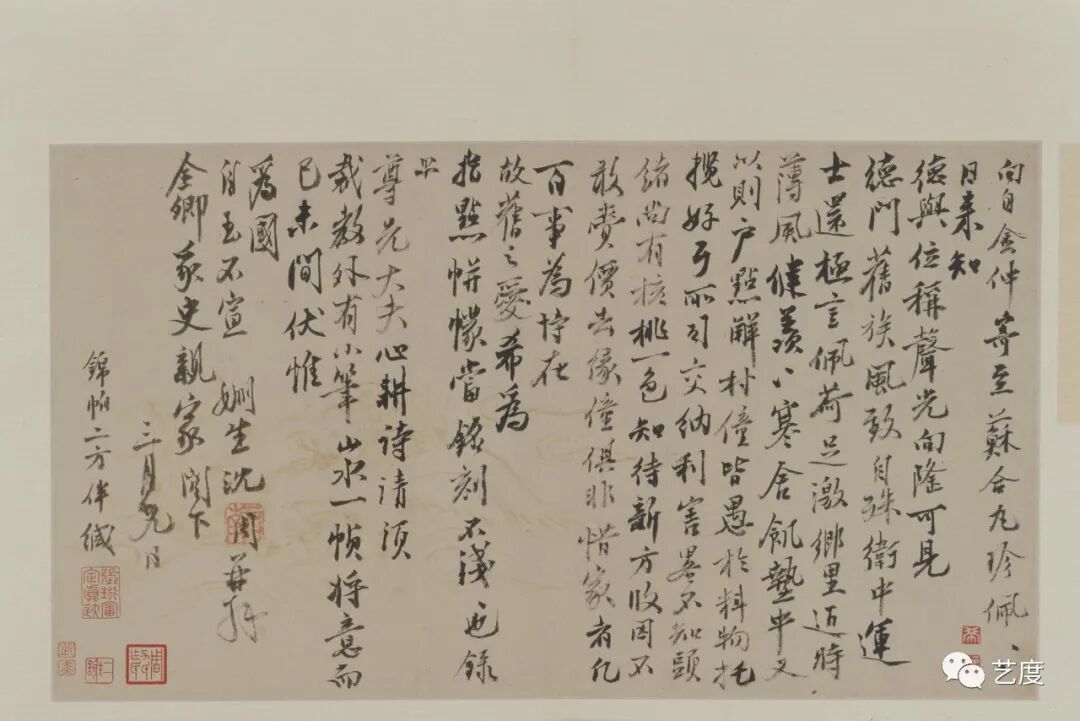 向自金仲寄至蘇合丸珍佩、
日來知
德與位稱聲光向隆可見
德門舊族風致自殊衛中運
士還極言佩荷足激鄉里近時
薄風健羨、寒舍飢墊中又
以則户點解村僮皆愚於料物托
攬好歹所司交納利害畧不知頭
緒尚有核桃一色知待新方收因不
敢費價去緣僮俱非惜家者凡
百事為恃在
故舊之愛希為
指點帡幪當銘刻不淺也錄
上
尊翁大夫心耕詩請須
裁教外有小筆山水一幀將意而
已未間伏惟
為國
自玉不宣 姻生沈周再拜
全卿冢史親家閣下
三月九日
錦帕二方伴緘
艺度